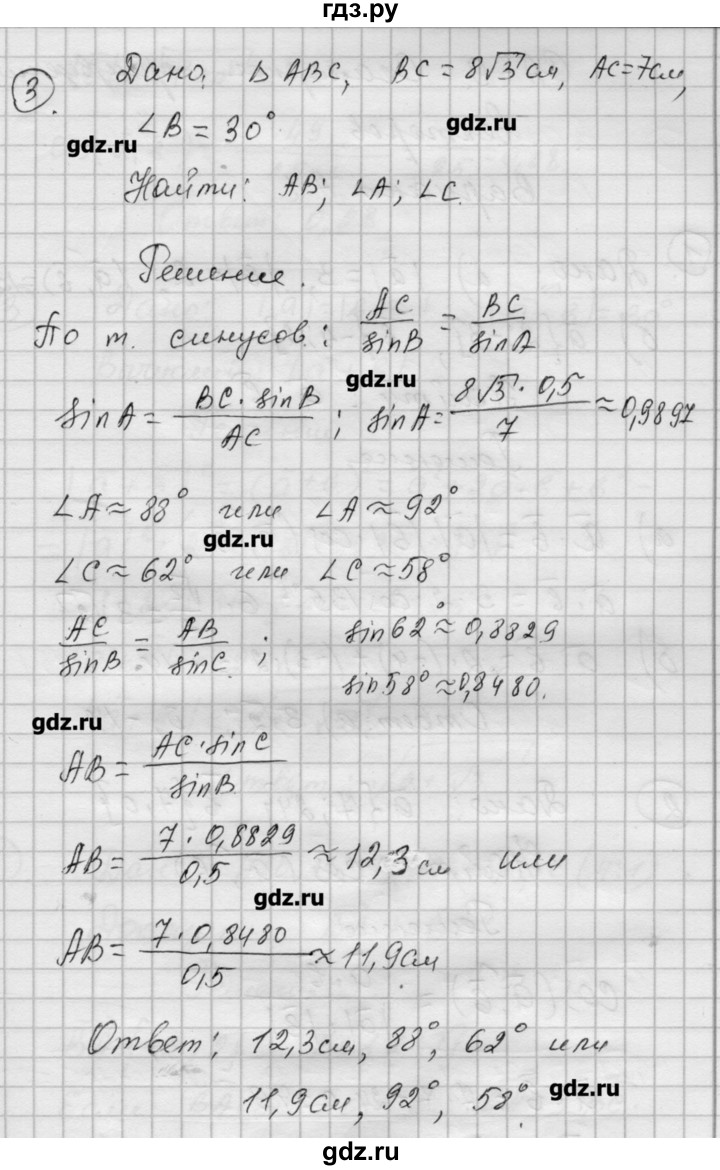 гдз.ру
3. Дано: Δ ABC, BC = 8√3 см, AC = 7см,
∠B = 30°.
gdz.ru
gdz.ru
Найти: AB; ∠A; ∠C.
Решение.
По т. синусов: AC/sinB = BC/sinA
gdz.ru
sinA = BC·sinB/AC ; sinA = 8√3·0,5/7 ≈ 0,9897
∠A ≈ 88° или ∠A ≈ 92°.
gdz.ru
∠C ≈ 62° или ∠C ≈ 58°
AC/sinB = AB/sinC ; sin62° ≈ 0,8829
sin58° ≈ 0,8480.
gdz.ru
AB = AC·sinC/sinB
AB = 7·0,8829/0,5 ≈ 12,3 см или
gdz.ru
AB = 7·0,8480/0,5 ≈ 11,9см
Ответ: 12,3см, 88°, 62° или
gdz.ru
11,9см, 92°, 58°.
gdz.ru